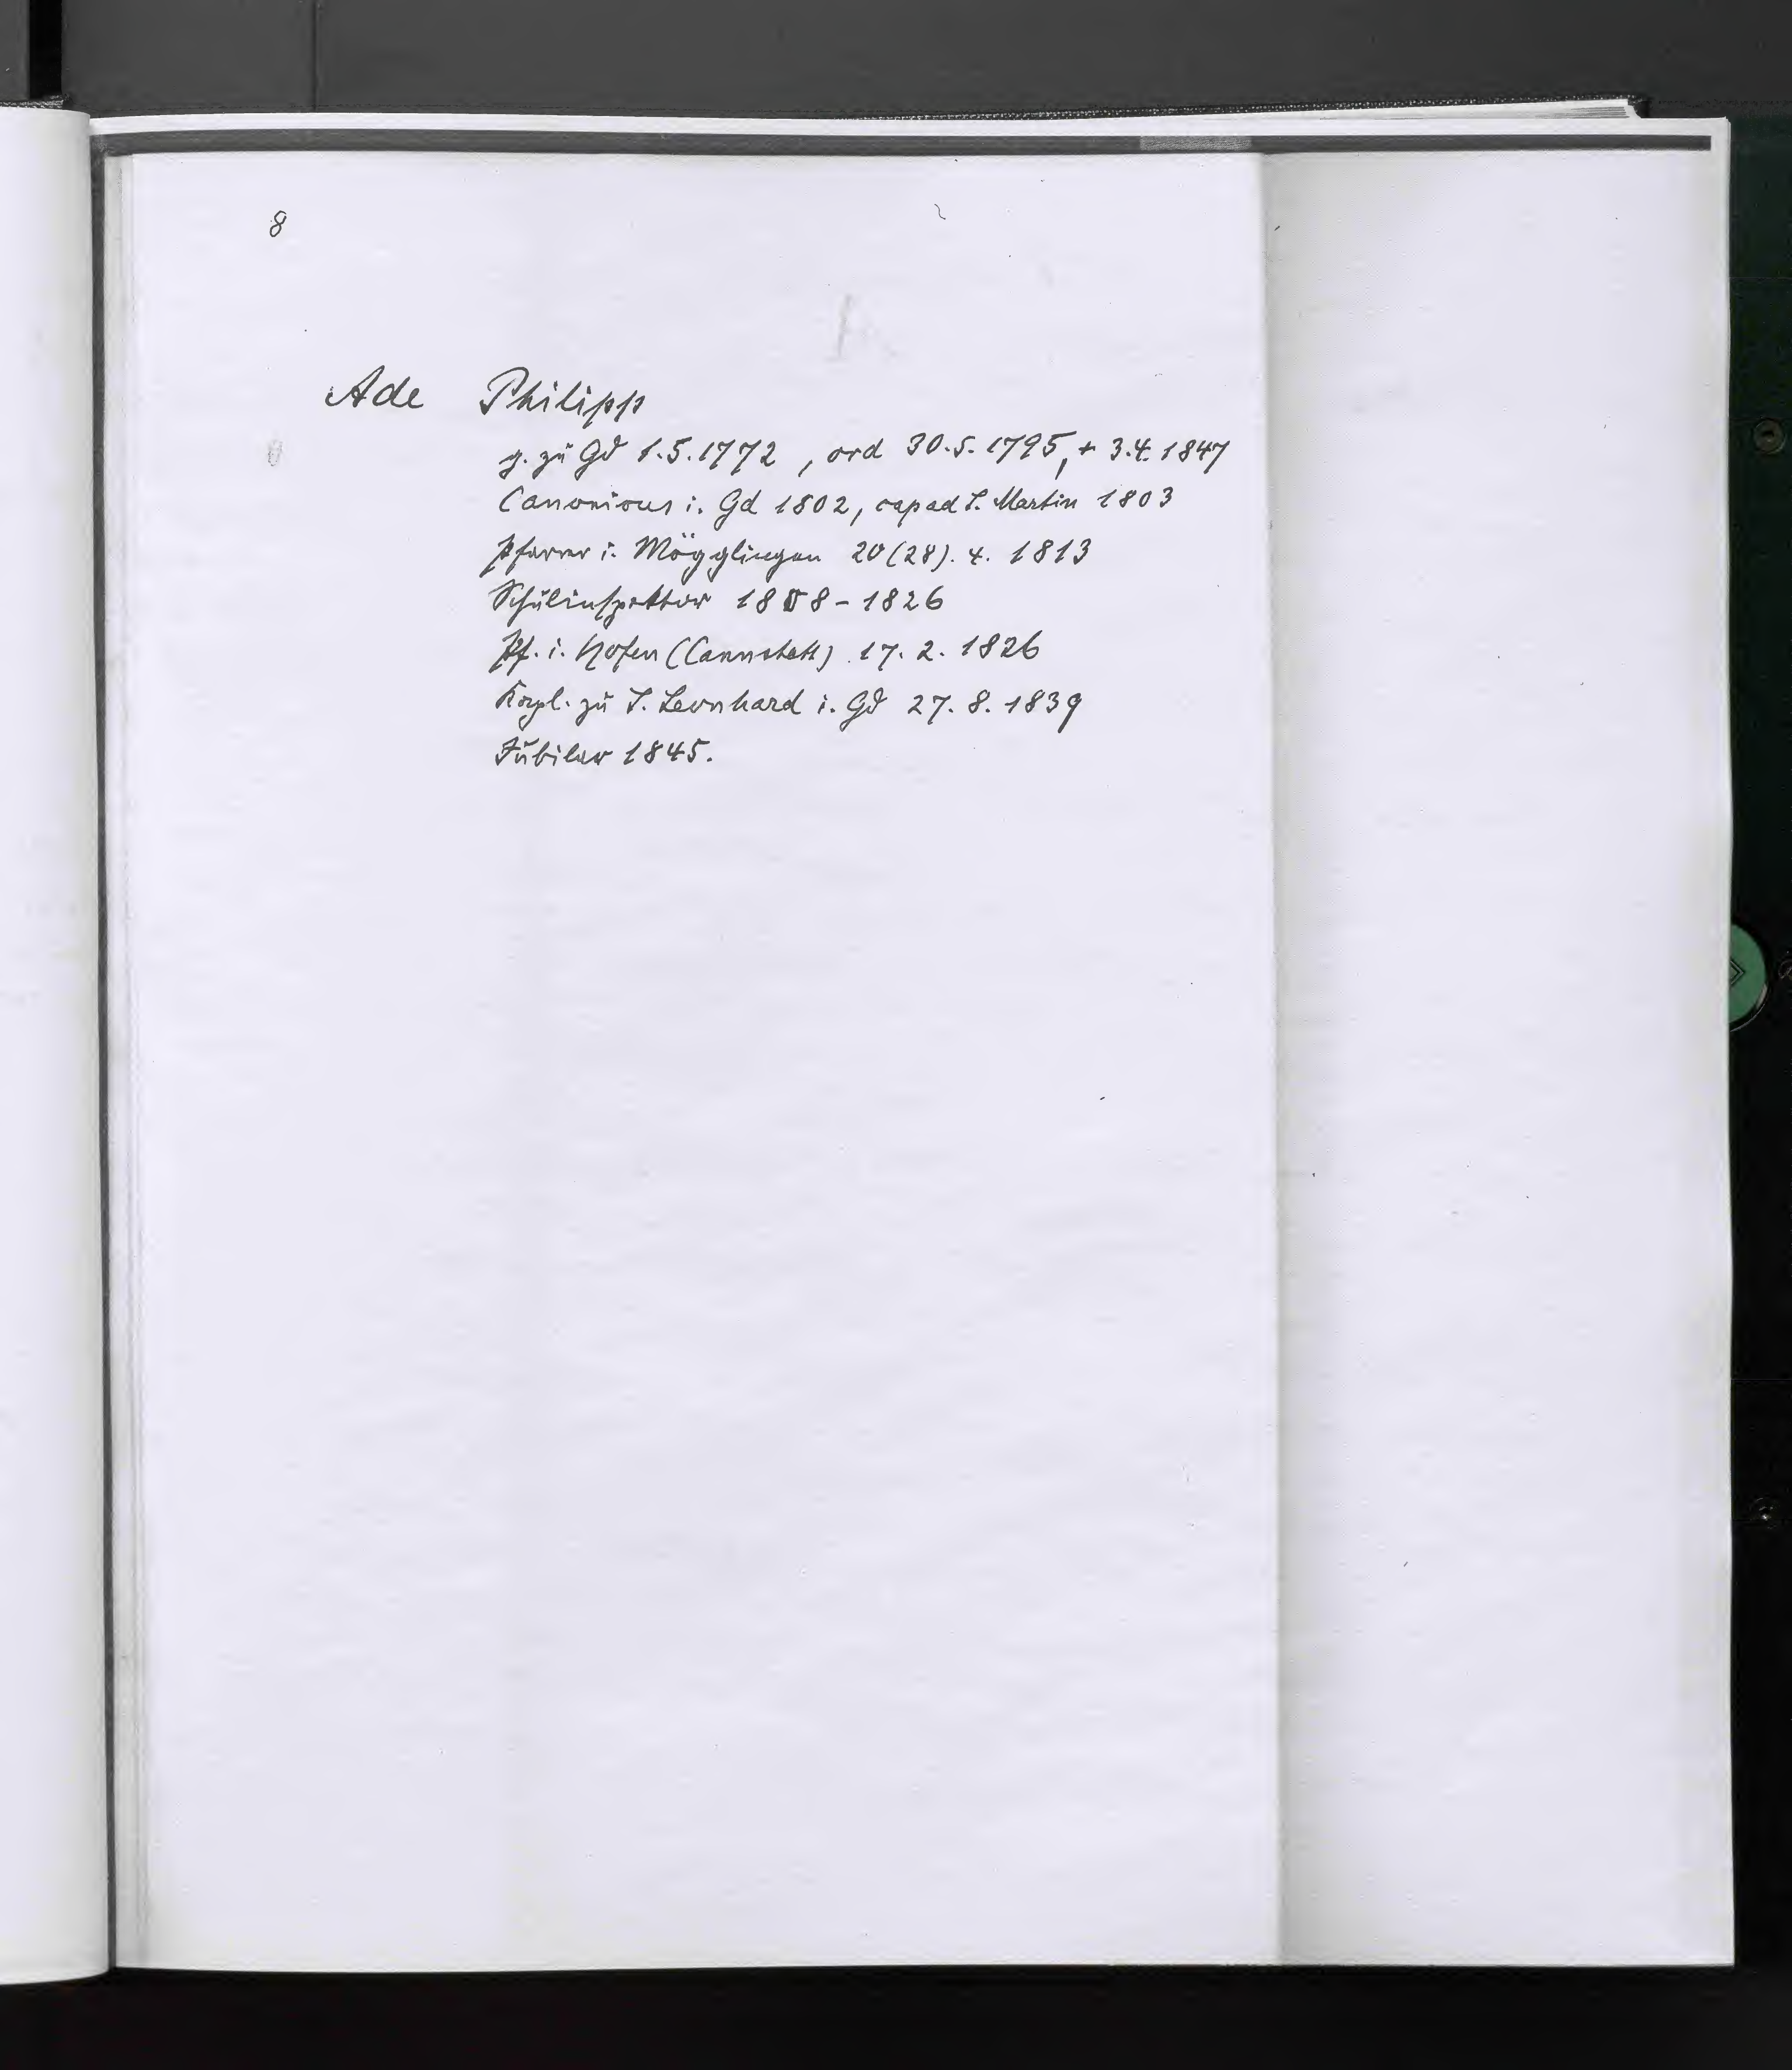 8
A
Ade Philipp
g. zu Gd 1.5.1772, ord 30.5.1795, + 3.4.1847
Canonicus i. Gd 1802, cap ad S. Martin 1803
Pfarrer i. Mögglingen 20(28). 4. 1813
Schulinspektor 1818-1826
Pf. i. Hofen (Cannstatt) 17. 2. 1826
Kapl. zu S. Leonhard i. Gd 27. 8. 1839
Jubilar 1845.